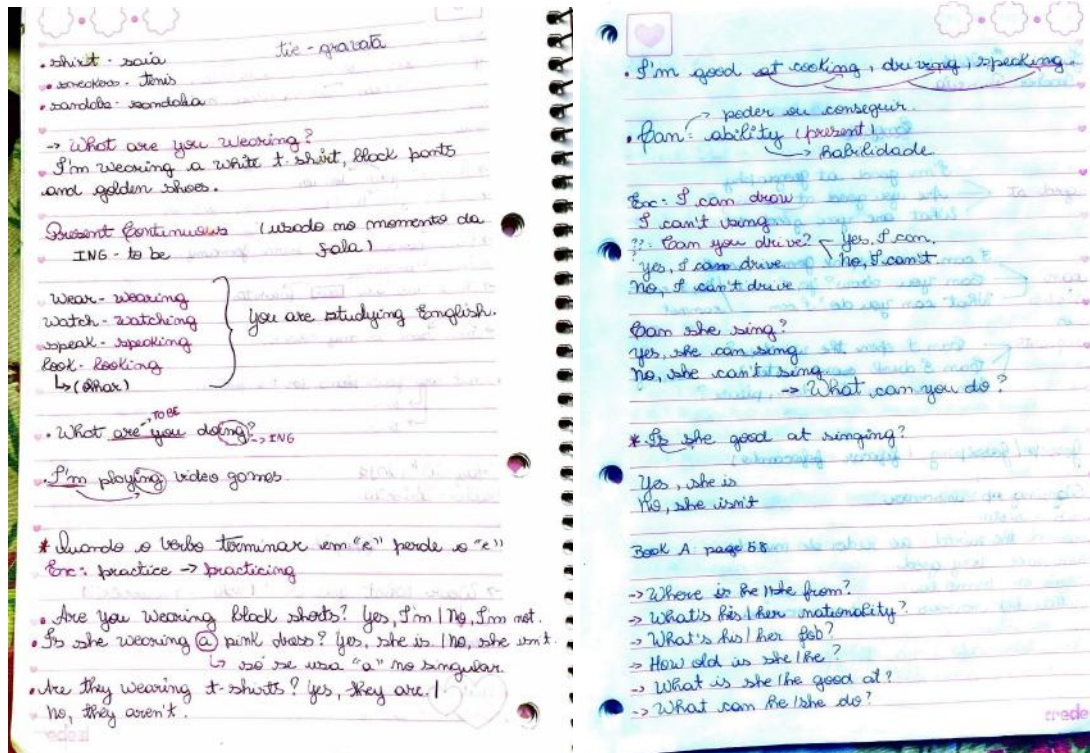 • shirt - saia
tie - gravata
• sneakers - tênis
• sandals - sandália
→ What are you wearing?
I'm wearing a white t-shirt, black pants
and golden shoes.
Present Continuous (usado no momento da
fala)
ING - to be
Wear - wearing
Watch - watching
speak - speaking
look - looking
↳ (olhar)
You are studying English.
→ TO BE
• What are you doing? → ING
• I'm playing video games.
* Quando o verbo terminar em "e" perde o "e"
Exc: practice → practicing
• Are you wearing black shorts? Yes, I'm | No, I'm not.
• Is she wearing a pink dress? Yes, she is. | No, she isn't.
↳ só se usa "a" no singular.
• Are they wearing t-shirts? Yes, they are. |
No, they aren't.
• I'm good at cooking, driving, speaking.
→ poder ou conseguir.
• Can: ability (present)
→ habilidade
Exc: I can draw
I can't sing
??: Can you drive? Yes, I can.
Yes, I can drive No, I can't.
No, I can't drive
Can she sing?
Yes, she can sing
No, she can't sing
→ What can you do?
* Is she good at singing?
Yes, she is
No, she isn't
Book A: page 58
→ Where is he/she from?
→ What's his/her nationality?
→ What's his/her job?
→ How old is she/he?
→ What is she/he good at?
→ What can he/she do?
credeal